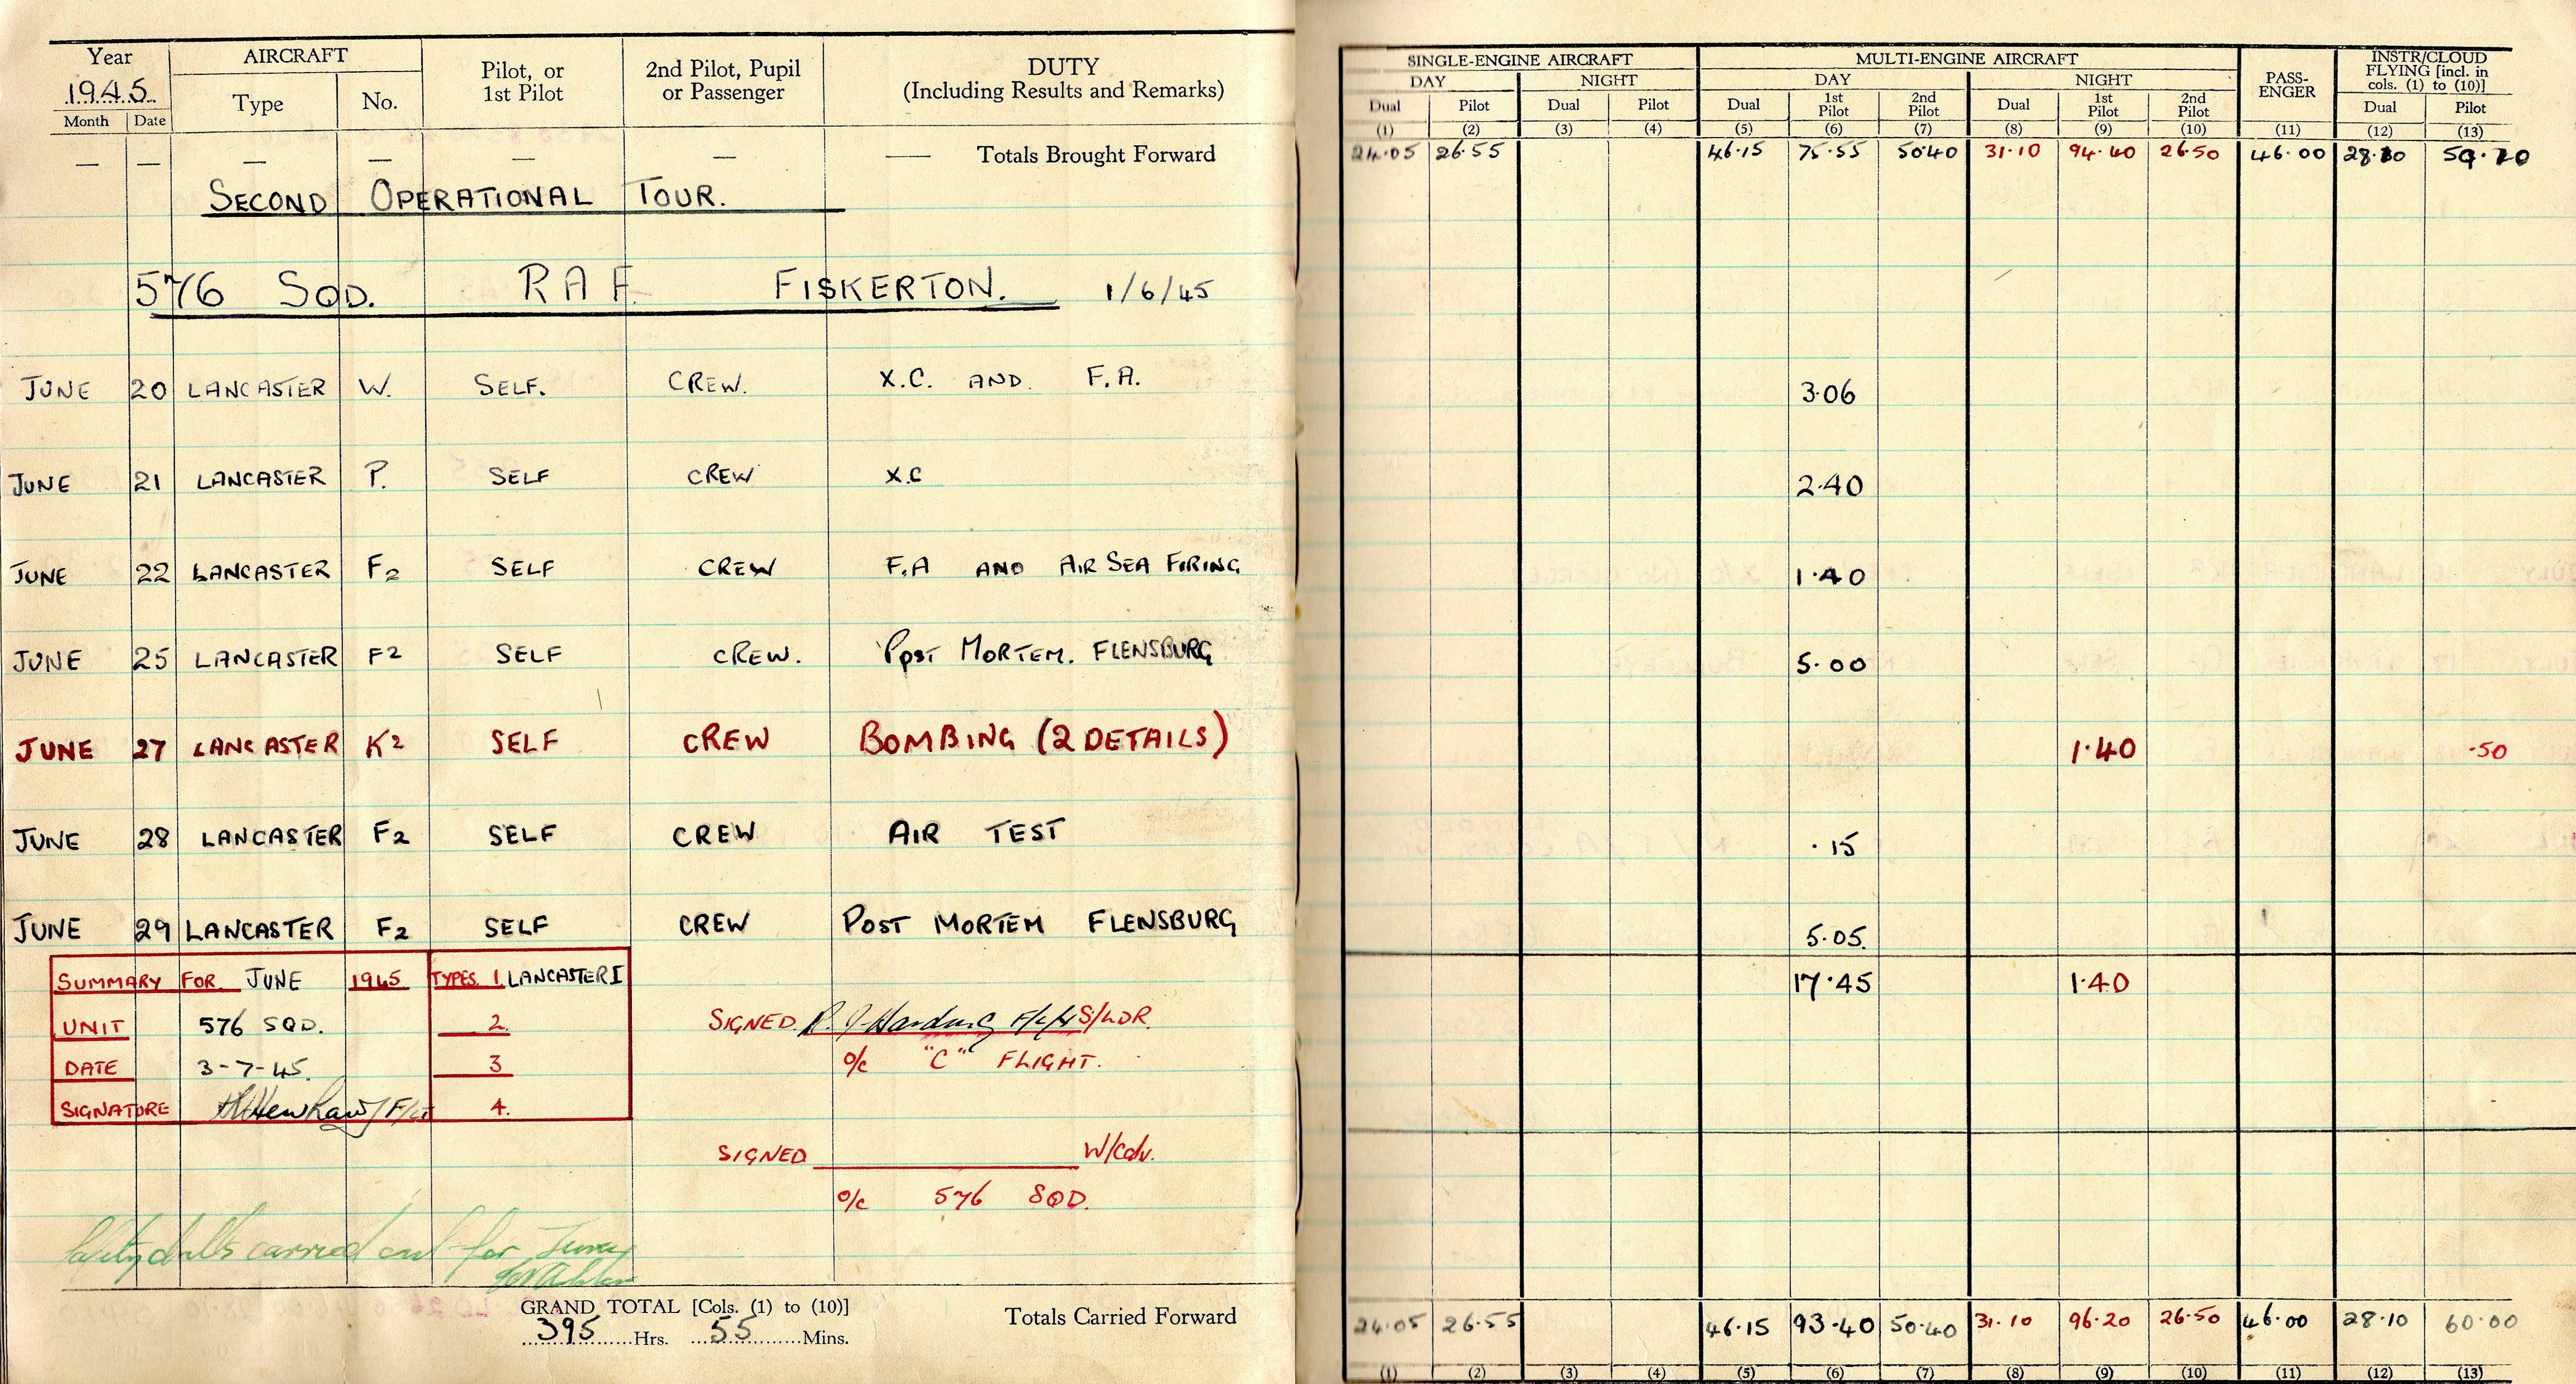 Year AIRCRAFT Pilot, or 1st Pilot 2nd Pilot, Pupil or Passenger DUTY (Including Results and Remarks)
1945 Type No.
Month Date
— — — — — — —— Totals Brought Forward
SECOND OPERATIONAL TOUR.
576 SQD. RAF FISKERTON. 1/6/45
JUNE 20 LANCASTER W. SELF. CREW. X.C. AND F.A.
JUNE 21 LANCASTER P. SELF CREW X.C
JUNE 22 LANCASTER F2 SELF CREW F.A AND AIR SEA FIRING
JUNE 25 LANCASTER F2 SELF CREW. POST MORTEM. FLENSBURG
JUNE 27 LANCASTER K2 SELF CREW BOMBING (2 DETAILS)
JUNE 28 LANCASTER F2 SELF CREW AIR TEST
JUNE 29 LANCASTER F2 SELF CREW POST MORTEM FLENSBURG
SUMMARY FOR JUNE 1945 TYPES. 1. LANCASTER I
UNIT 576 SQD. 2.
DATE 3-7-45. 3
SIGNATURE F/Lt 4.
SIGNED. F/Lt S/LDR.
o/c "C" FLIGHT.
SIGNED W/Cdr.
o/c 576 SQD.
carried out for June
GRAND TOTAL [Cols. (1) to (10)] Totals Carried Forward
395 Hrs. 55 Mins.
SINGLE-ENGINE AIRCRAFT MULTI-ENGINE AIRCRAFT PASS-ENGER INSTR/CLOUD FLYING [incl. in cols. (1) to (10)]
DAY NIGHT DAY NIGHT
Dual Pilot Dual Pilot Dual 1st Pilot 2nd Pilot Dual 1st Pilot 2nd Pilot Dual Pilot
(1) (2) (3) (4) (5) (6) (7) (8) (9) (10) (11) (12) (13)
24.05 26.55 46.15 75.55 50.40 31.10 94.40 26.50 46.00 28.10
3.06
2.40
1.40
5.00
1.40 .50
.15
5.05.
17.45 1.40
24.05 26.55 46.15 93.40 50.40 31.10 96.20 26.50 46.00 28.10 60.00
(1) (2) (3) (4) (5) (6) (7) (8) (9) (10) (11) (12) (13)